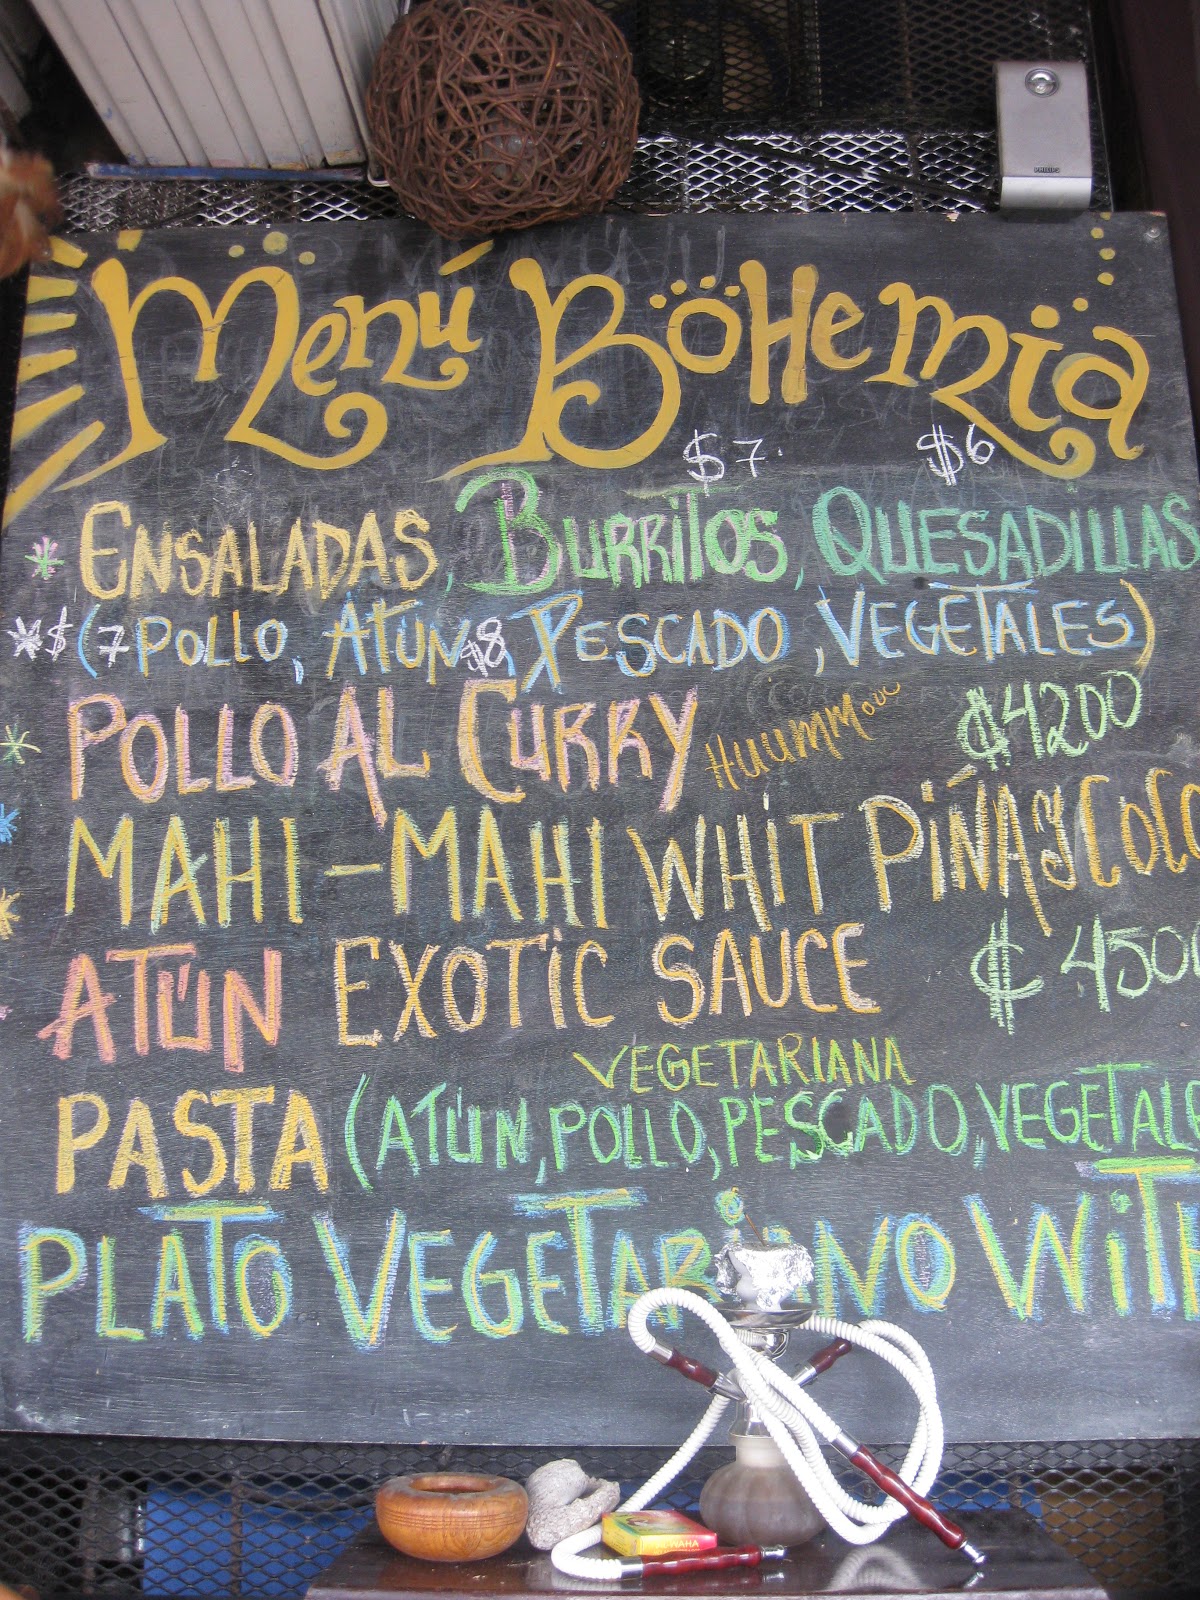 PHILIPS
Menú Bohemia
$7 $6
* ENSALADAS, BURRITOS, QUESADILLAS
*$ (7 POLLO, ATÚN $8, PESCADO, VEGETALES)
* POLLO AL CURRY HUUMMM ₡4200
* MAHI-MAHI WHIT PIÑA Y COCO
* ATÚN EXOTIC SAUCE ₡4500
VEGETARIANA
PASTA (ATÚN, POLLO, PESCADO, VEGETALE
PLATO VEGETARIANO WITH